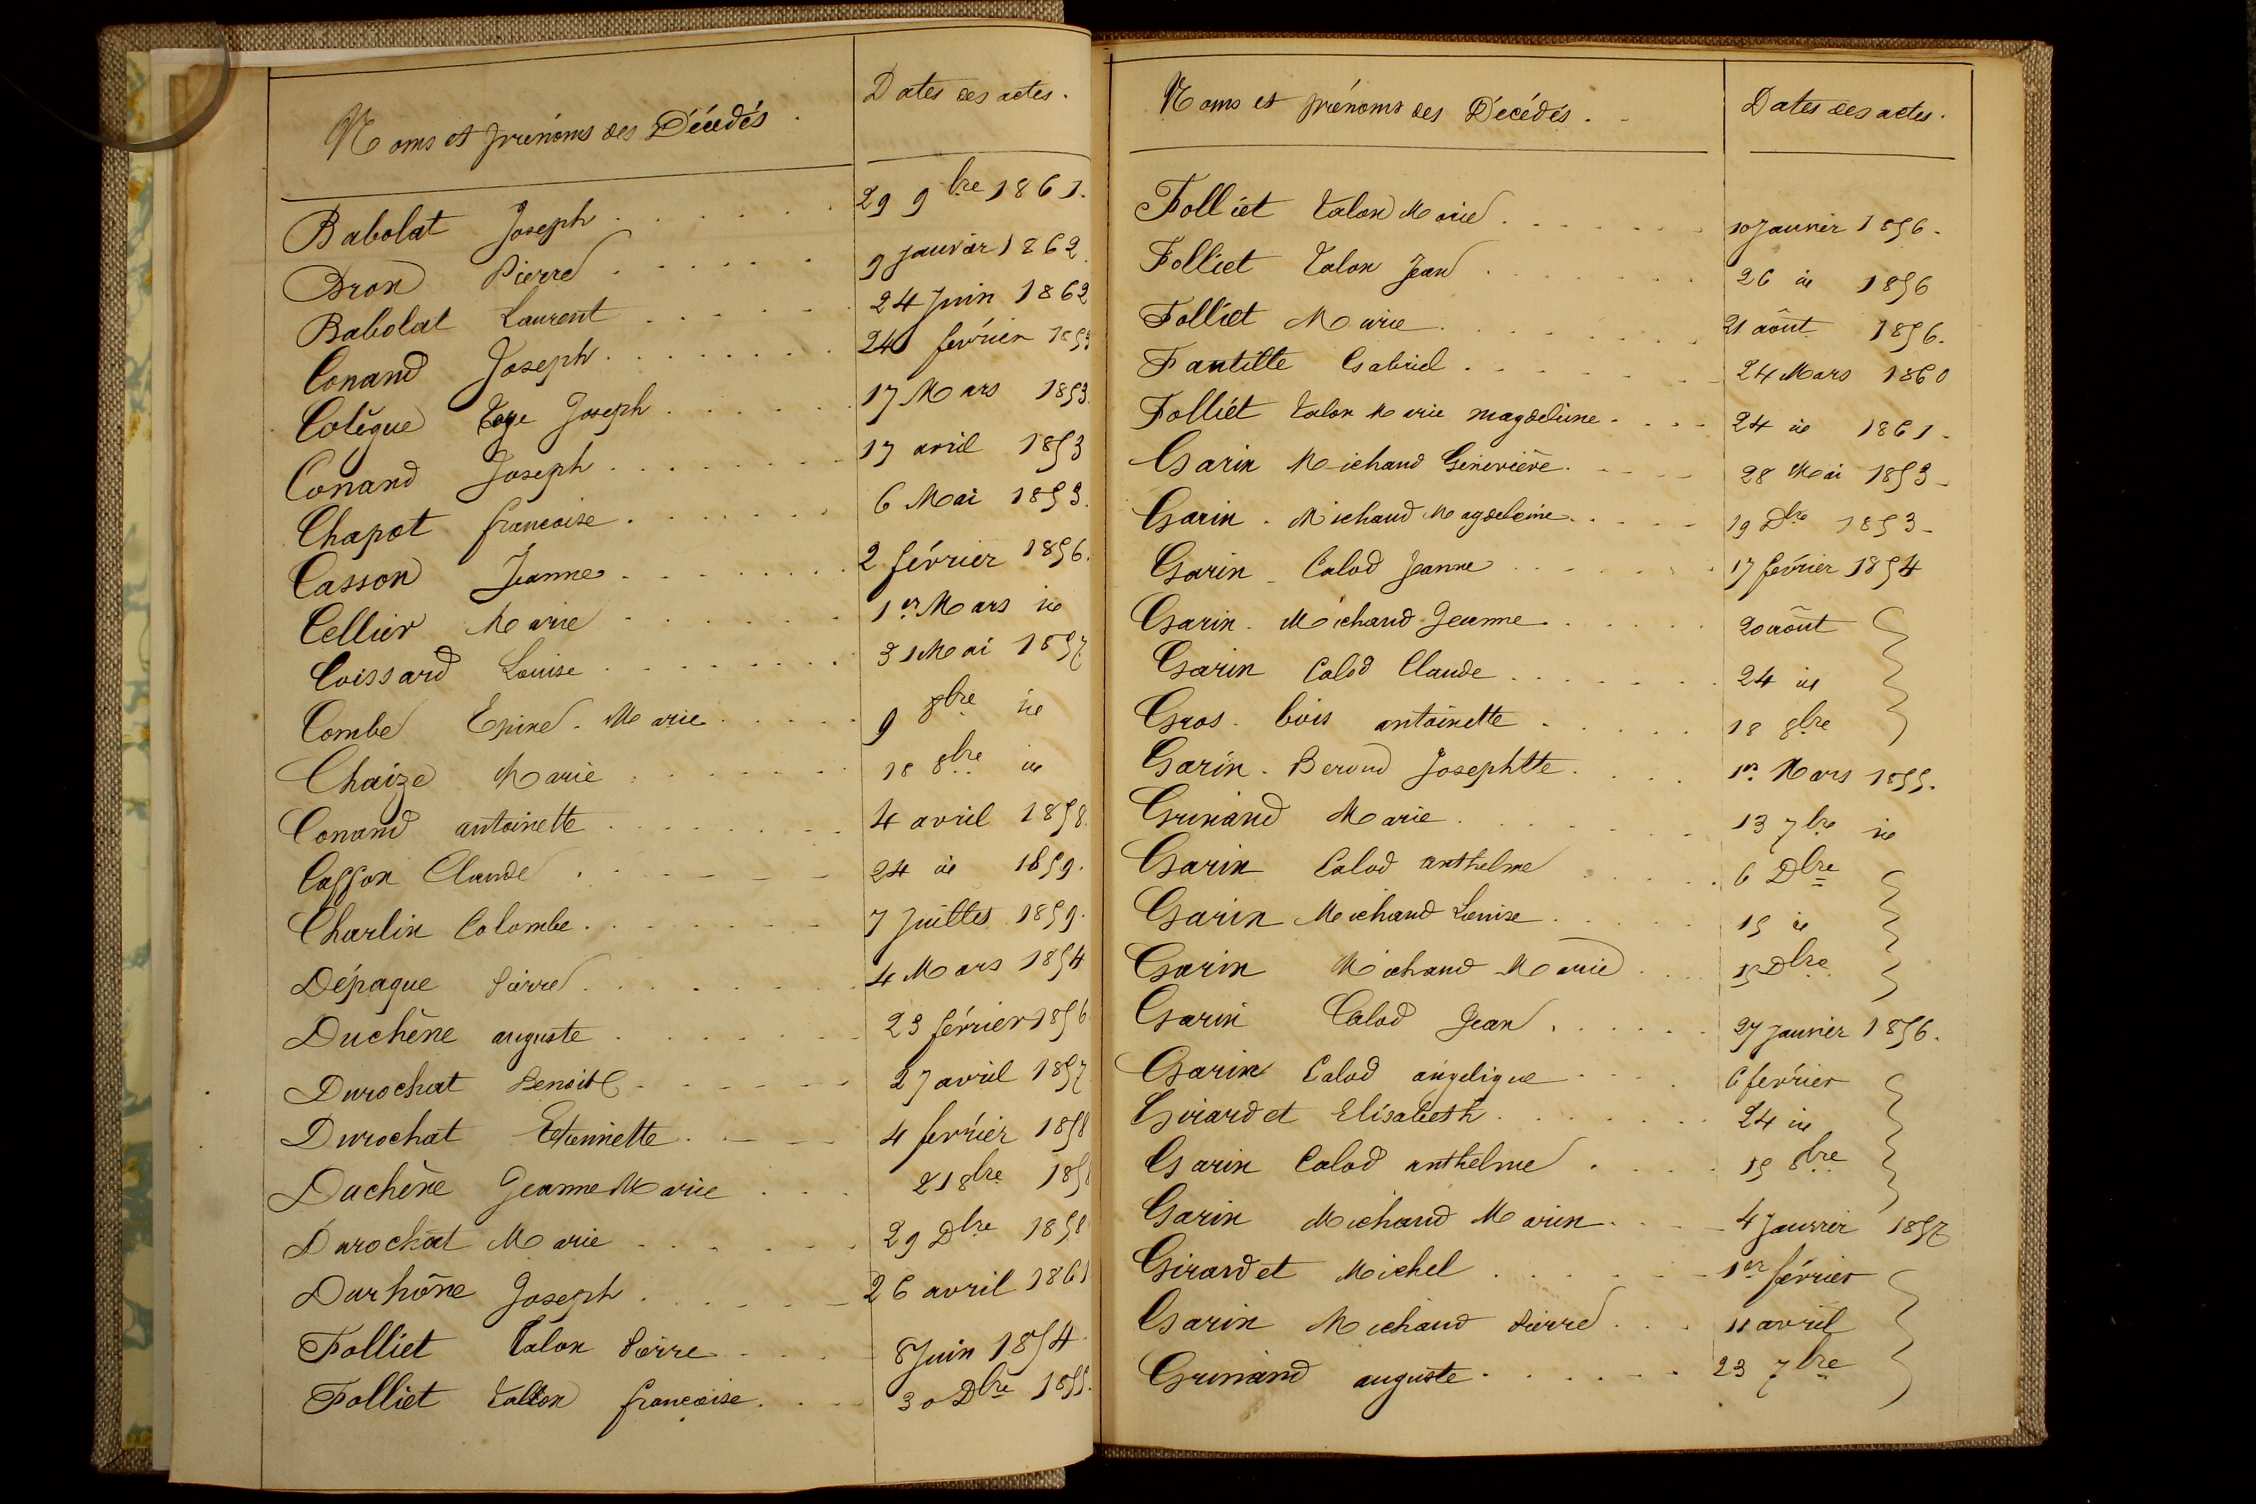 Noms et prénoms des Décédés.
Dates des actes.
Babolat Joseph 29 9bre 1861.
Dron Pierre 9 janvier 1862.
Babolat Laurent 24 Juin 1862
Conand Joseph 24 février 1853
Colègue Joseph 17 Mars 1853.
Conand Joseph 17 avril 1853
Chapot francoise 6 Mai 1853.
Casson Jeanne 2 février 1856.
Cellier Marie 1er Mars id
Coissard Louise 31 Mai 1857
Combe Epine. Marie 9 8bre id
Chaize Marie 18 8bre id
Conand antoinette 4 avril 1858.
Casson Claude 24 id 1859.
Charlin Colombe 7 Juillet 1859.
Dépague Pierre 4 Mars 1854
Duchêne auguste 23 février 1856
Durochat Benoit 27 avril 1857
Durochat Etiennette 4 fevrier 1858
Duchêne Jeanne Marie 21 8bre 1858
Durochat Marie 29 Dbre 1858
Durhône Joseph 26 avril 1861
Folliet Talon Pierre 8 Juin 1854.
Folliet Tallon françoise 30 Dbre 1855.
Noms et prénoms des Décédés.
Dates des actes.
Folliet Talon Marie 10 Janvier 1856.
Folliet Talon Jean 26 id 1856
Folliet Marie 21 aôut 1856.
Fantille Gabriel 24 Mars 1860
Folliét Talon Marie magdeleine 24 id 1861.
Garin Michaud Genevière 28 Mai 1853
Garin. Michaud Magdeleine 19 Dbre 1853
Garin Calod Jeanne 17 février 1854
Garin. Michaud Jeanne 20 aôut
Garin Calod Claude 24 id
Gros. bois antoinette 18 8bre
Garin. Beroud Josephtte 1er Mars 1855.
Grinand Marie 13 7bre id
Garin Calod anthelme 6 Dbre
Garin Michaud Louise 15 id
Garin Michaud Marie 15 Dbre
Garin Calod Jean 27 janvier 1856.
Garin Calod angelique 6 fevrier
Girardet Elisabeth 24 id
Garin Calod anthelme 15 8bre
Garin Michaud Marin 4 Janvier 1857
Girardet Michel 1er février
Garin Michaud Pierre 11 avril
Grinand auguste 23 7bre